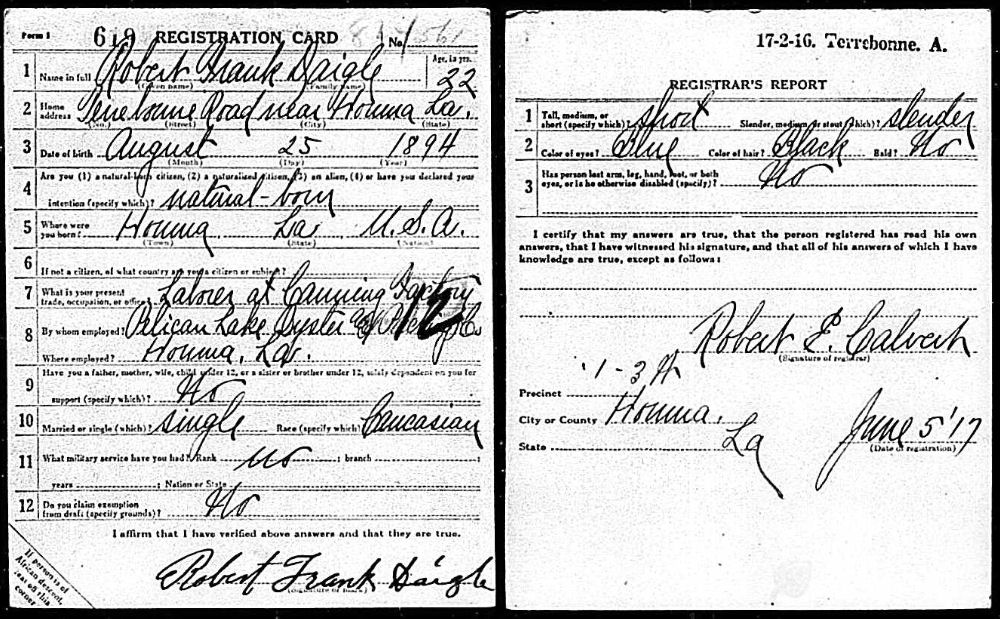 Form 1 619 REGISTRATION CARD No. 1
1 Name in full Robert Frank Daigle Age, in yrs. 22
(Given name) (Family name)
2 Home address Terrebonne Road near Houma La.
(No.) (Street) (City) (State)
3 Date of birth August 25 1894
(Month) (Day) (Year)
4 Are you (1) a natural-born citizen, (2) a naturalized citizen, (3) an alien, (4) or have you declared your
intention (specify which)? natural-born
5 Where were you born? Houma La. U.S.A.
(Town) (State) (Nation)
6 If not a citizen, of what country are you a citizen or subject?
7 What is your present trade, occupation, or office? Laborer at Canning Factory
8 By whom employed? Pelican Lake Oyster & Co. 12
Where employed? Houma, La.
9 Have you a father, mother, wife, child under 12, or a sister or brother under 12, solely dependent on you for
support (specify which)? No
10 Married or single (which)? single Race (specify which)? Caucasian
11 What military service have you had? Rank no ; branch ;
years ; Nation or State
12 Do you claim exemption from draft (specify grounds)? No
I affirm that I have verified above answers and that they are true.
Robert Frank Daigle
If person is of
African descent,
tear off this
corner
17-2-16. Terrebonne. A.
REGISTRAR'S REPORT
1 Tall, medium, or short (specify which)? short Slender, medium, or stout (which)? slender
2 Color of eyes? Blue Color of hair? Black Bald? No
3 Has person lost arm, leg, hand, foot, or both eyes, or is he otherwise disabled (specify)? No
I certify that my answers are true, that the person registered has read his own
answers, that I have witnessed his signature, and that all of his answers of which I have
knowledge are true, except as follows:
Robert E. Calvert
(Signature of registrar)
Precinct 1-3
City or County Houma,
State La
June 5 '17
(Date of registration)